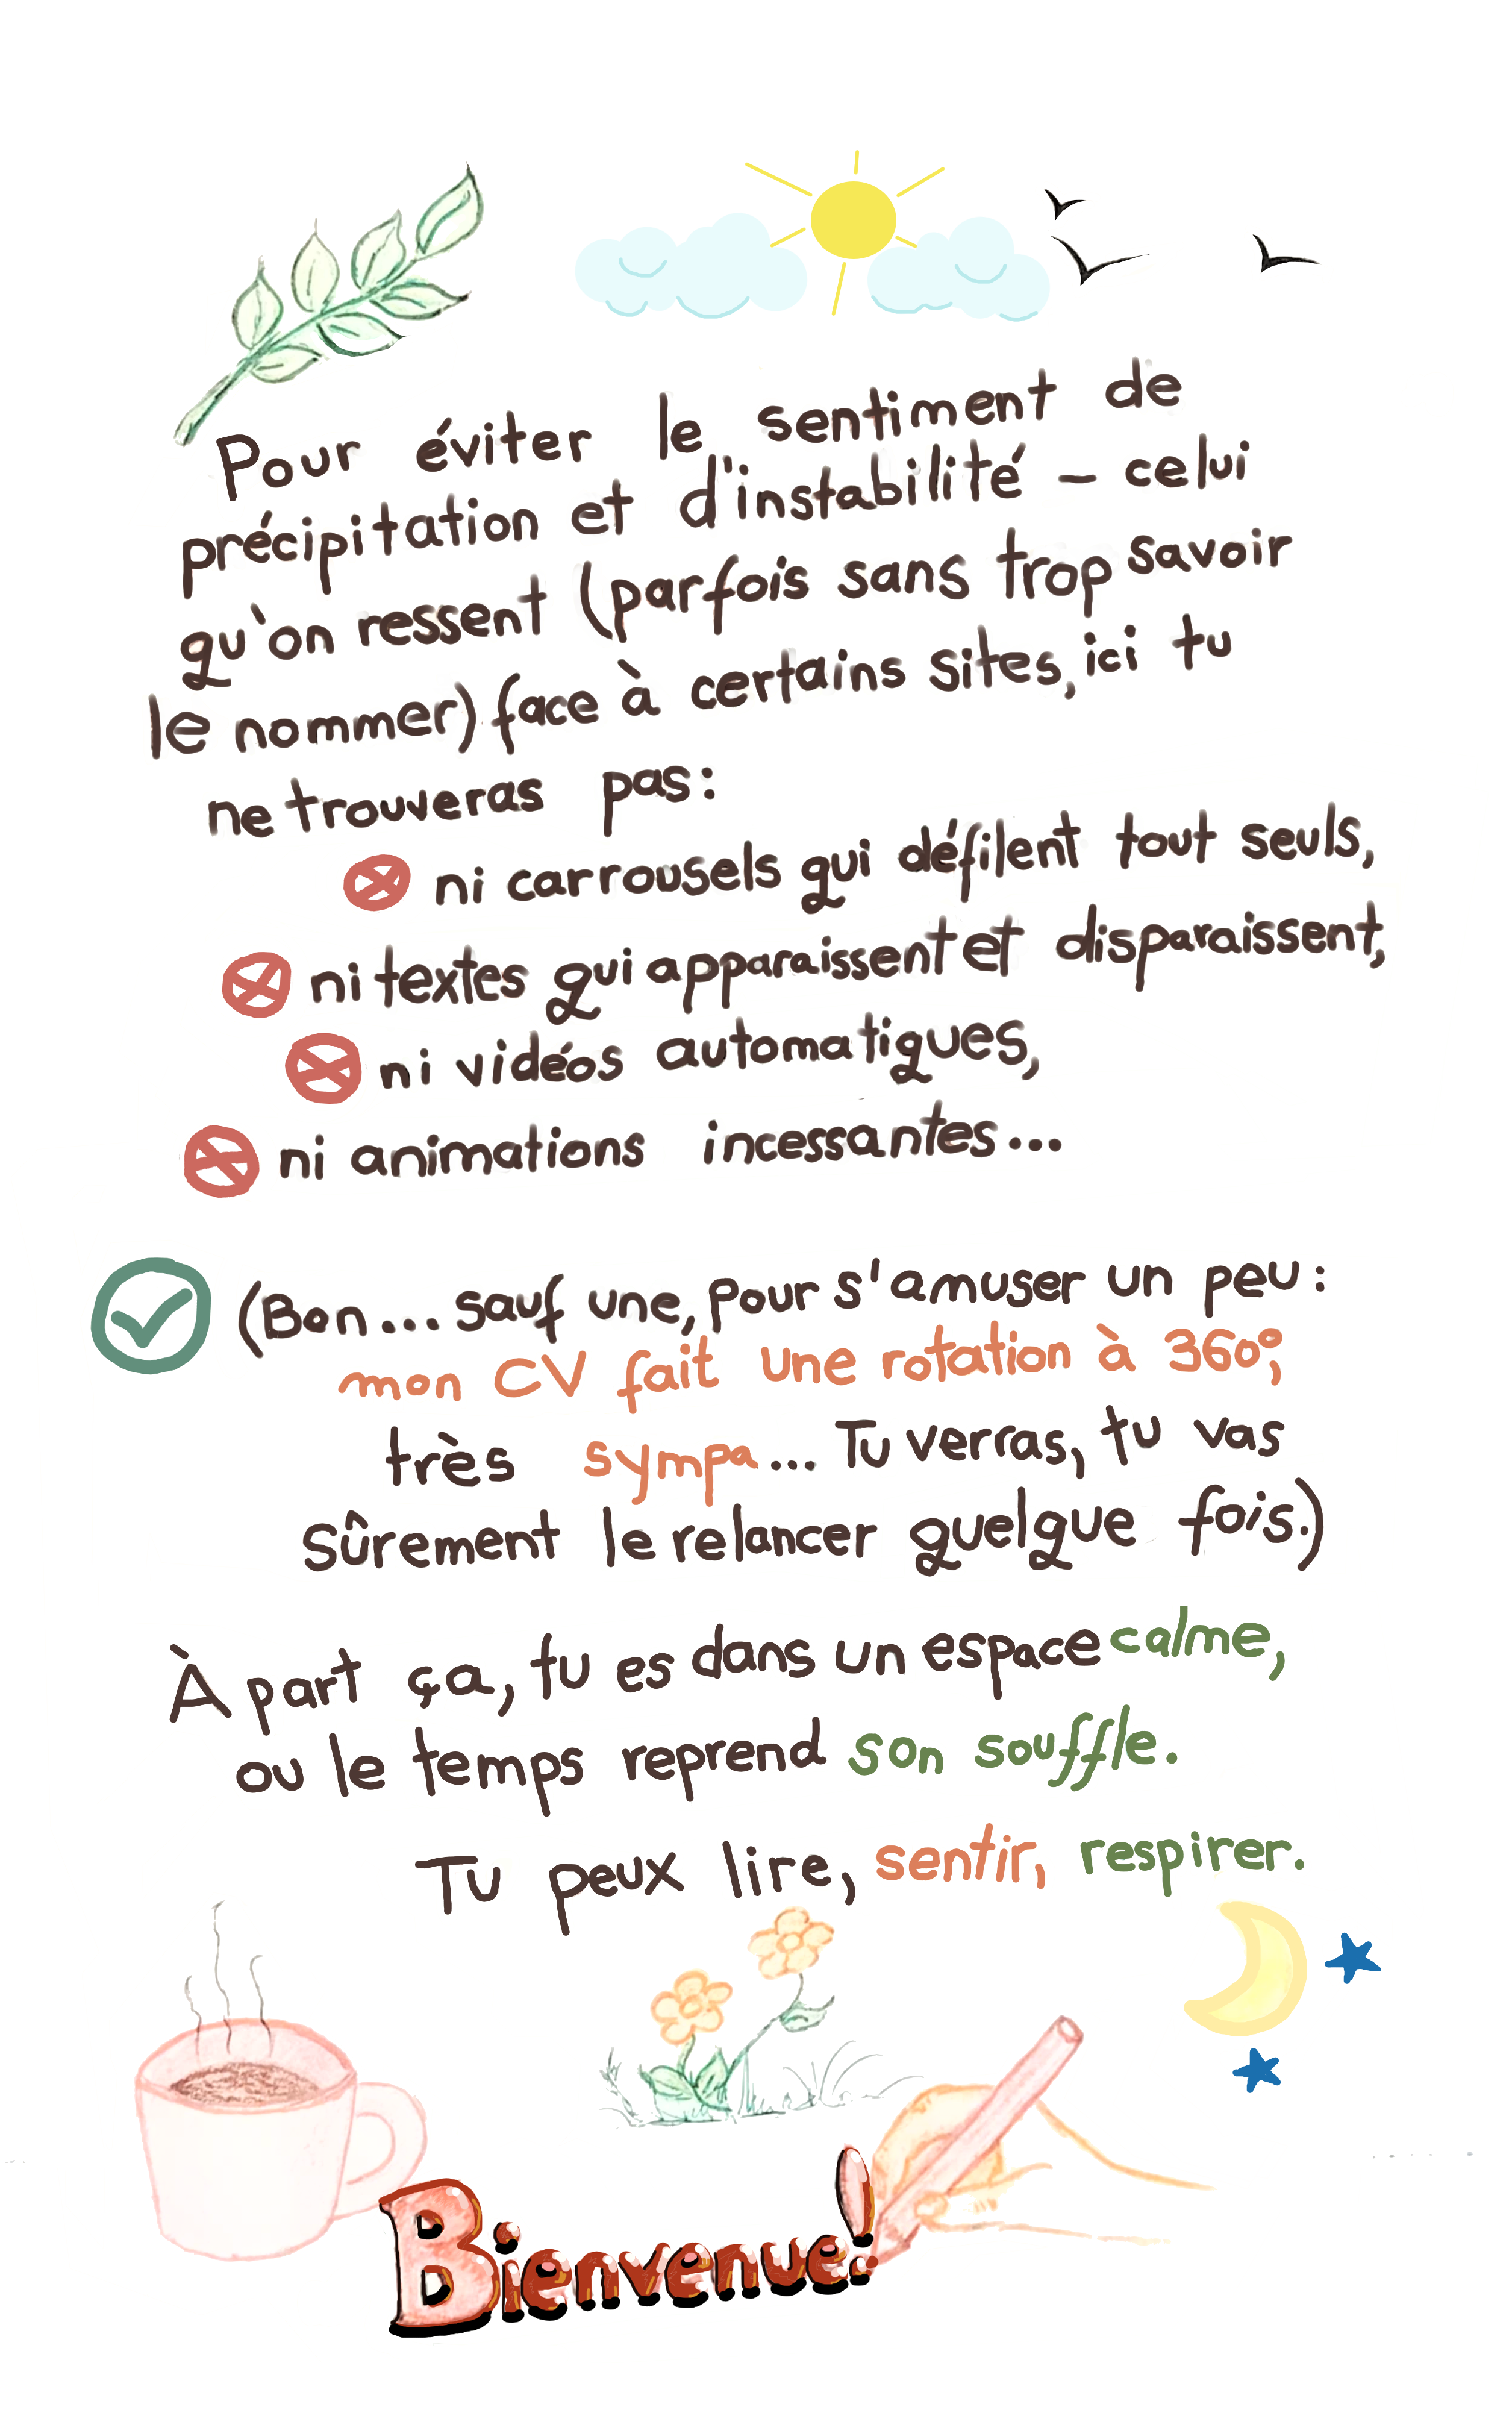 Pour éviter le sentiment de
précipitation et d'instabilité – celui
qu'on ressent (parfois sans trop savoir
le nommer) face à certains sites, ici tu
ne trouveras pas:
ni carrousels qui défilent tout seuls,
ni textes qui apparaissent et disparaissent,
ni vidéos automatiques,
ni animations incessantes...
(Bon... sauf une, pour s'amuser un peu :
mon CV fait une rotation à 360°,
très sympa... Tu verras, tu vas
sûrement le relancer quelque fois.)
À part ça, tu es dans un espace calme,
ou le temps reprend son souffle.
Tu peux lire, sentir, respirer.
Bienvenue!